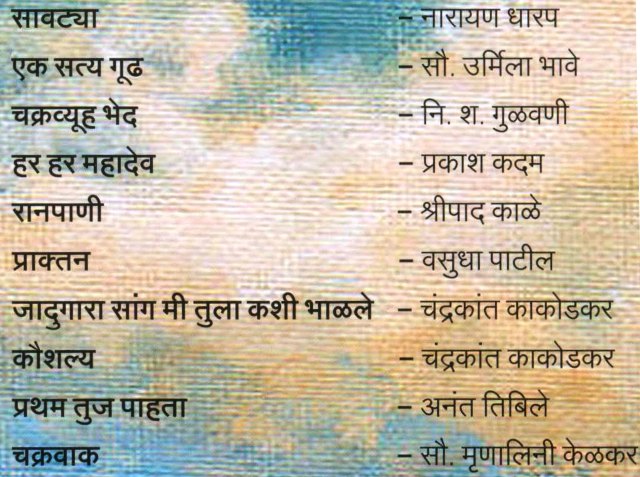 सावट्या – नारायण धारप
एक सत्य गूढ – सौ. उर्मिला भावे
चक्रव्यूह भेद – नि. श. गुळवणी
हर हर महादेव – प्रकाश कदम
रानपाणी – श्रीपाद काळे
प्राक्तन – वसुधा पाटील
जादुगारा सांग मी तुला कशी भाळले – चंद्रकांत काकोडकर
कौशल्य – चंद्रकांत काकोडकर
प्रथम तुज पाहता – अनंत तिबिले
चक्रवाक – सौ. मृणालिनी केळकर